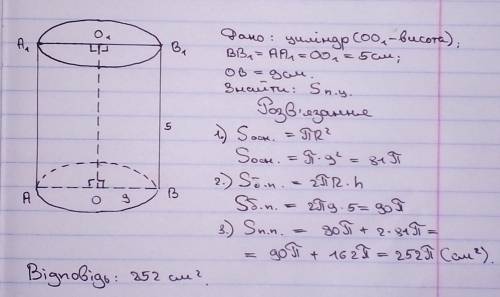 Дано: циліндр (OO₁-висота);
BB₁ = AA₁ = OO₁ = 5см;
OB = 9см.
Знайти: Sп.ц.
Розв'язання
1.) Sосн. = πR²
Sосн. = π·9² = 81π
2.) Sб.п. = 2πR·h
Sб.п. = 2π9·5 = 90π
3.) Sп.п. = 90π + 2·81π =
= 90π + 162π = 252π (см²).
A₁ O₁ B₁
5
A O 9 B
Відповідь: 252 см².